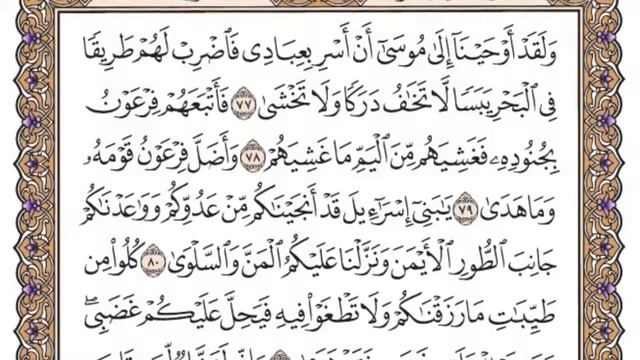 وَلَقَدْ أَوْحَيْنَآ إِلَىٰ مُوسَىٰٓ أَنْ أَسْرِ بِعِبَادِى فَٱضْرِبْ لَهُمْ طَرِيقًا
فِى ٱلْبَحْرِ يَبَسًا لَّا تَخَٰفُ دَرَكًا وَلَا تَخْشَىٰ ٧٧ فَأَتْبَعَهُمْ فِرْعَوْنُ
بِجُنُودِهِۦ فَغَشِيَهُم مِّنَ ٱلْيَمِّ مَا غَشِيَهُمْ ٧٨ وَأَضَلَّ فِرْعَوْنُ قَوْمَهُۥ
وَمَا هَدَىٰ ٧٩ يَٰبَنِىٓ إِسْرَٰٓءِيلَ قَدْ أَنجَيْنَٰكُم مِّنْ عَدُوِّكُمْ وَوَٰعَدْنَٰكُمْ
جَانِبَ ٱلطُّورِ ٱلْأَيْمَنَ وَنَزَّلْنَا عَلَيْكُمُ ٱلْمَنَّ وَٱلسَّلْوَىٰ ٨٠ كُلُوا۟ مِن
طَيِّبَٰتِ مَا رَزَقْنَٰكُمْ وَلَا تَطْغَوْا۟ فِيهِ فَيَحِلَّ عَلَيْكُمْ غَضَبِىۖ